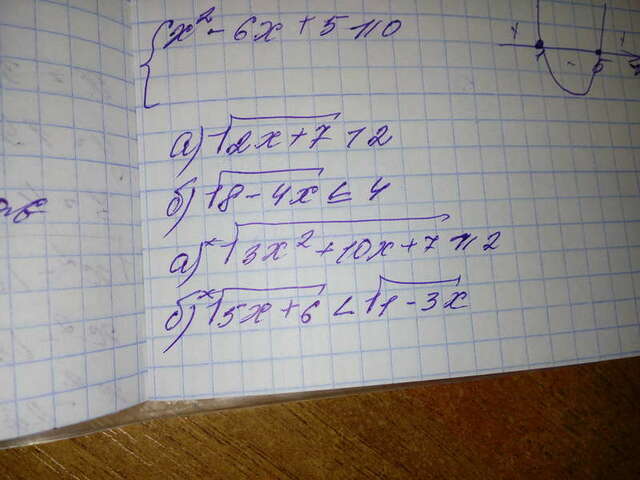 x² - 6x + 5 ≥ 0
+ - +
1 5
а) √2x+7 > 2
б) √8-4x ≤ 4
а)* √3x²+10x+7 ≥ 2
б)* √5x+6 < √1-3x